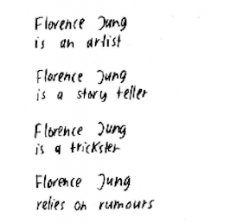 Florence Jung
is an artist
Florence Jung
is a story teller
Florence Jung
is a trickster
Florence Jung
relies on rumours